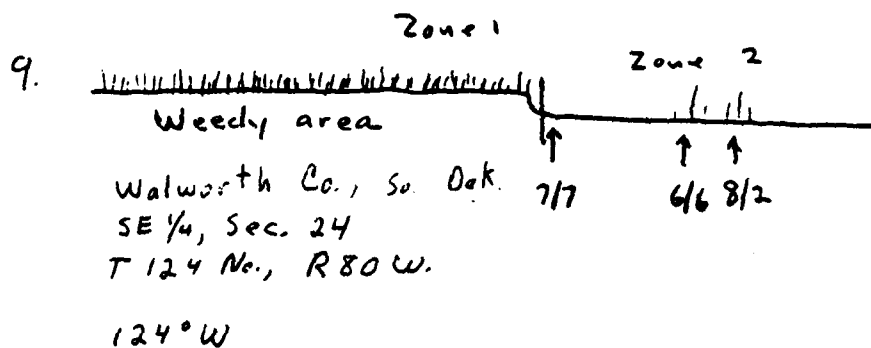 Zone 1
9.
Zone 2
Weedy area
7/7 6/6 8/2
Walworth Co., So. Dak.
SE 1/4, Sec. 24
T 124 No., R 80 W.
124° W